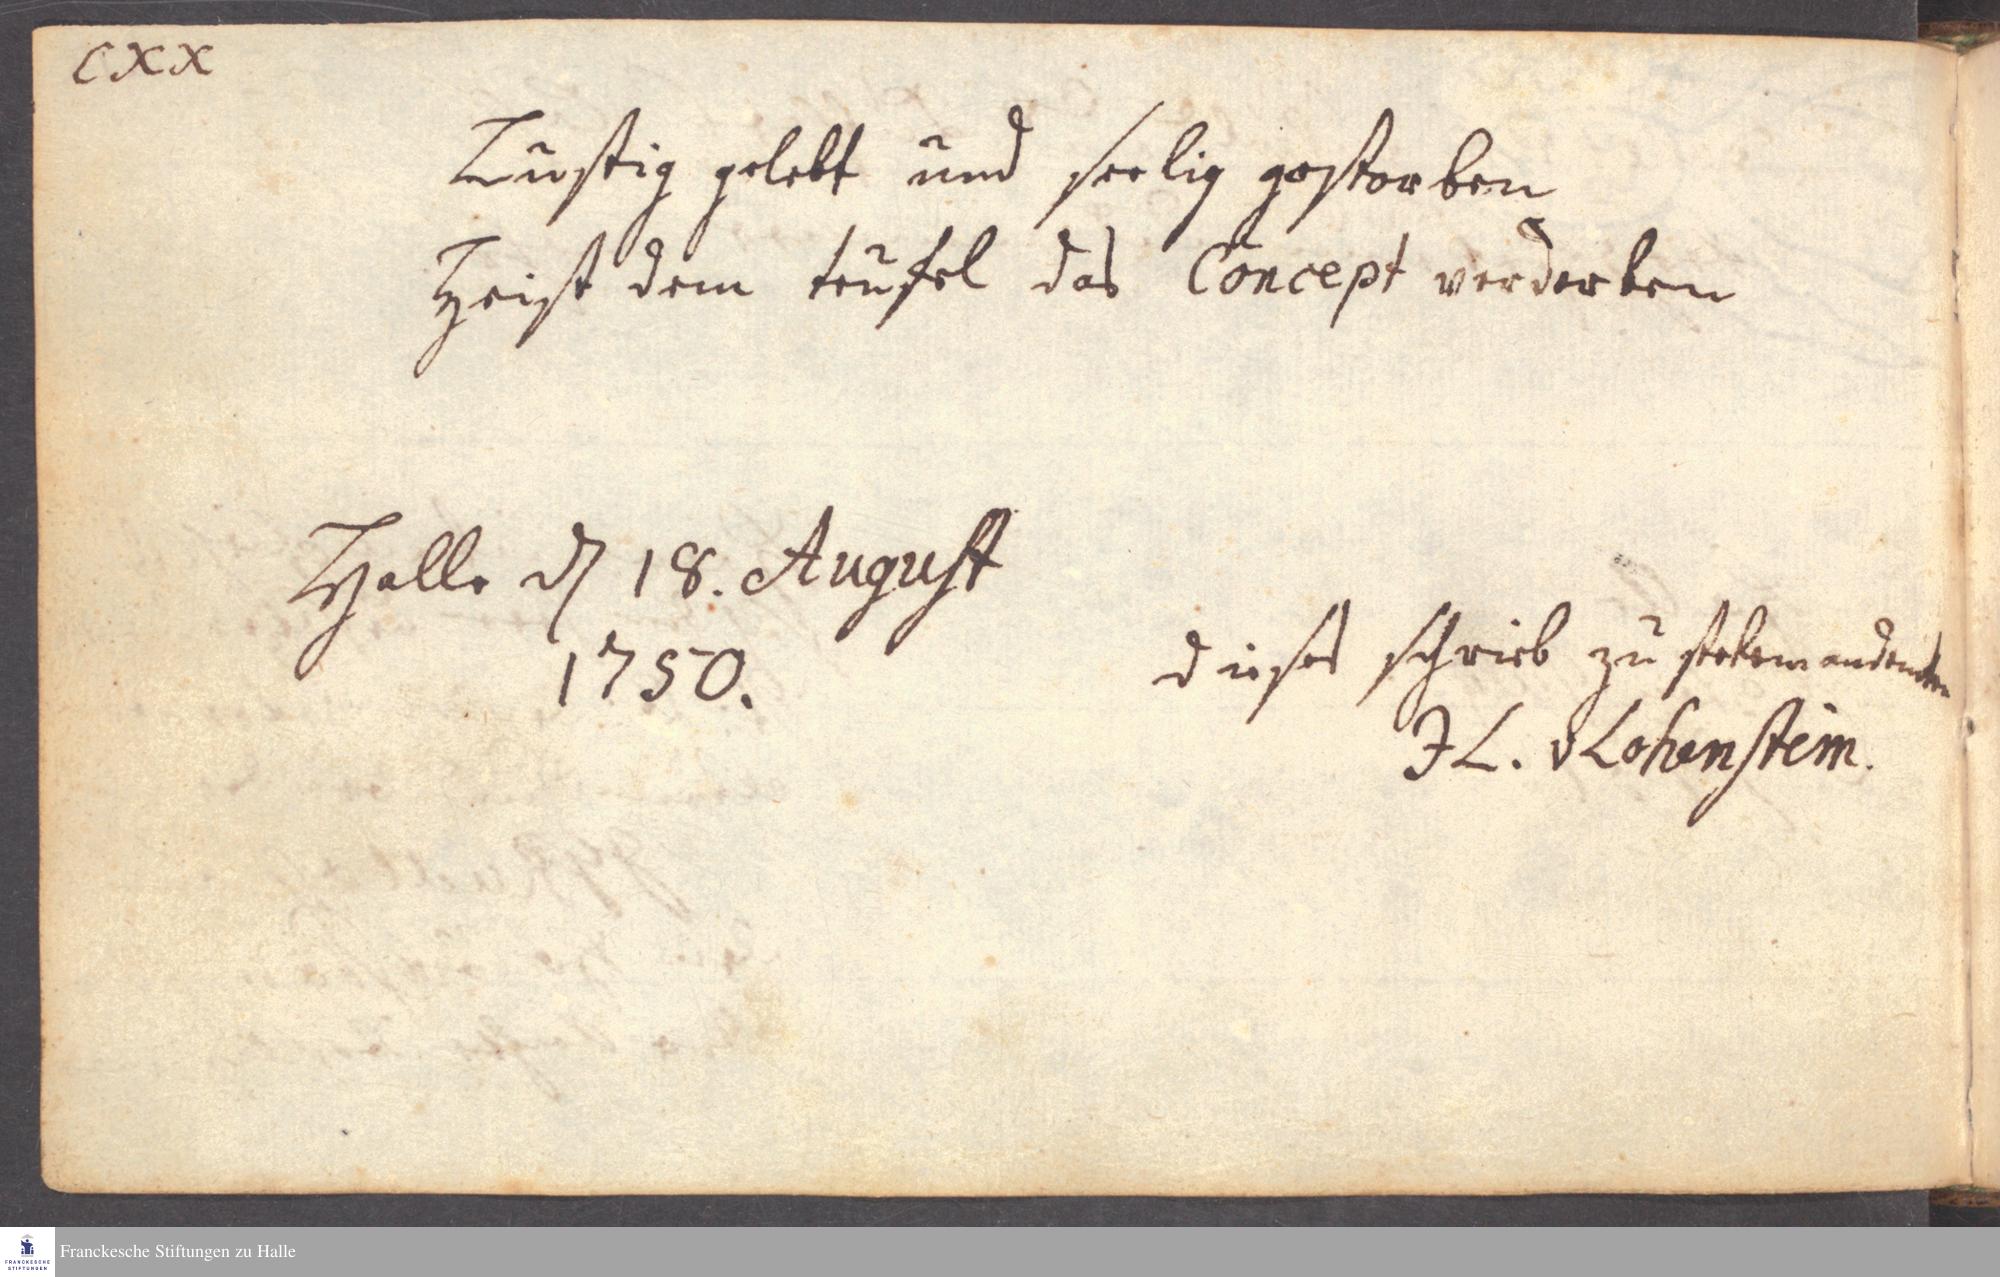 CXX
Lustig gelebt und seelig gestorben
Heist dem teufel das Concept verderben
Halle d 18. August
1750.
dieses schrieb zu stetem andencken
JL. v Lohenstein.
Franckesche Stiftungen zu Halle
FRANCKESCHE
STIFTUNGEN